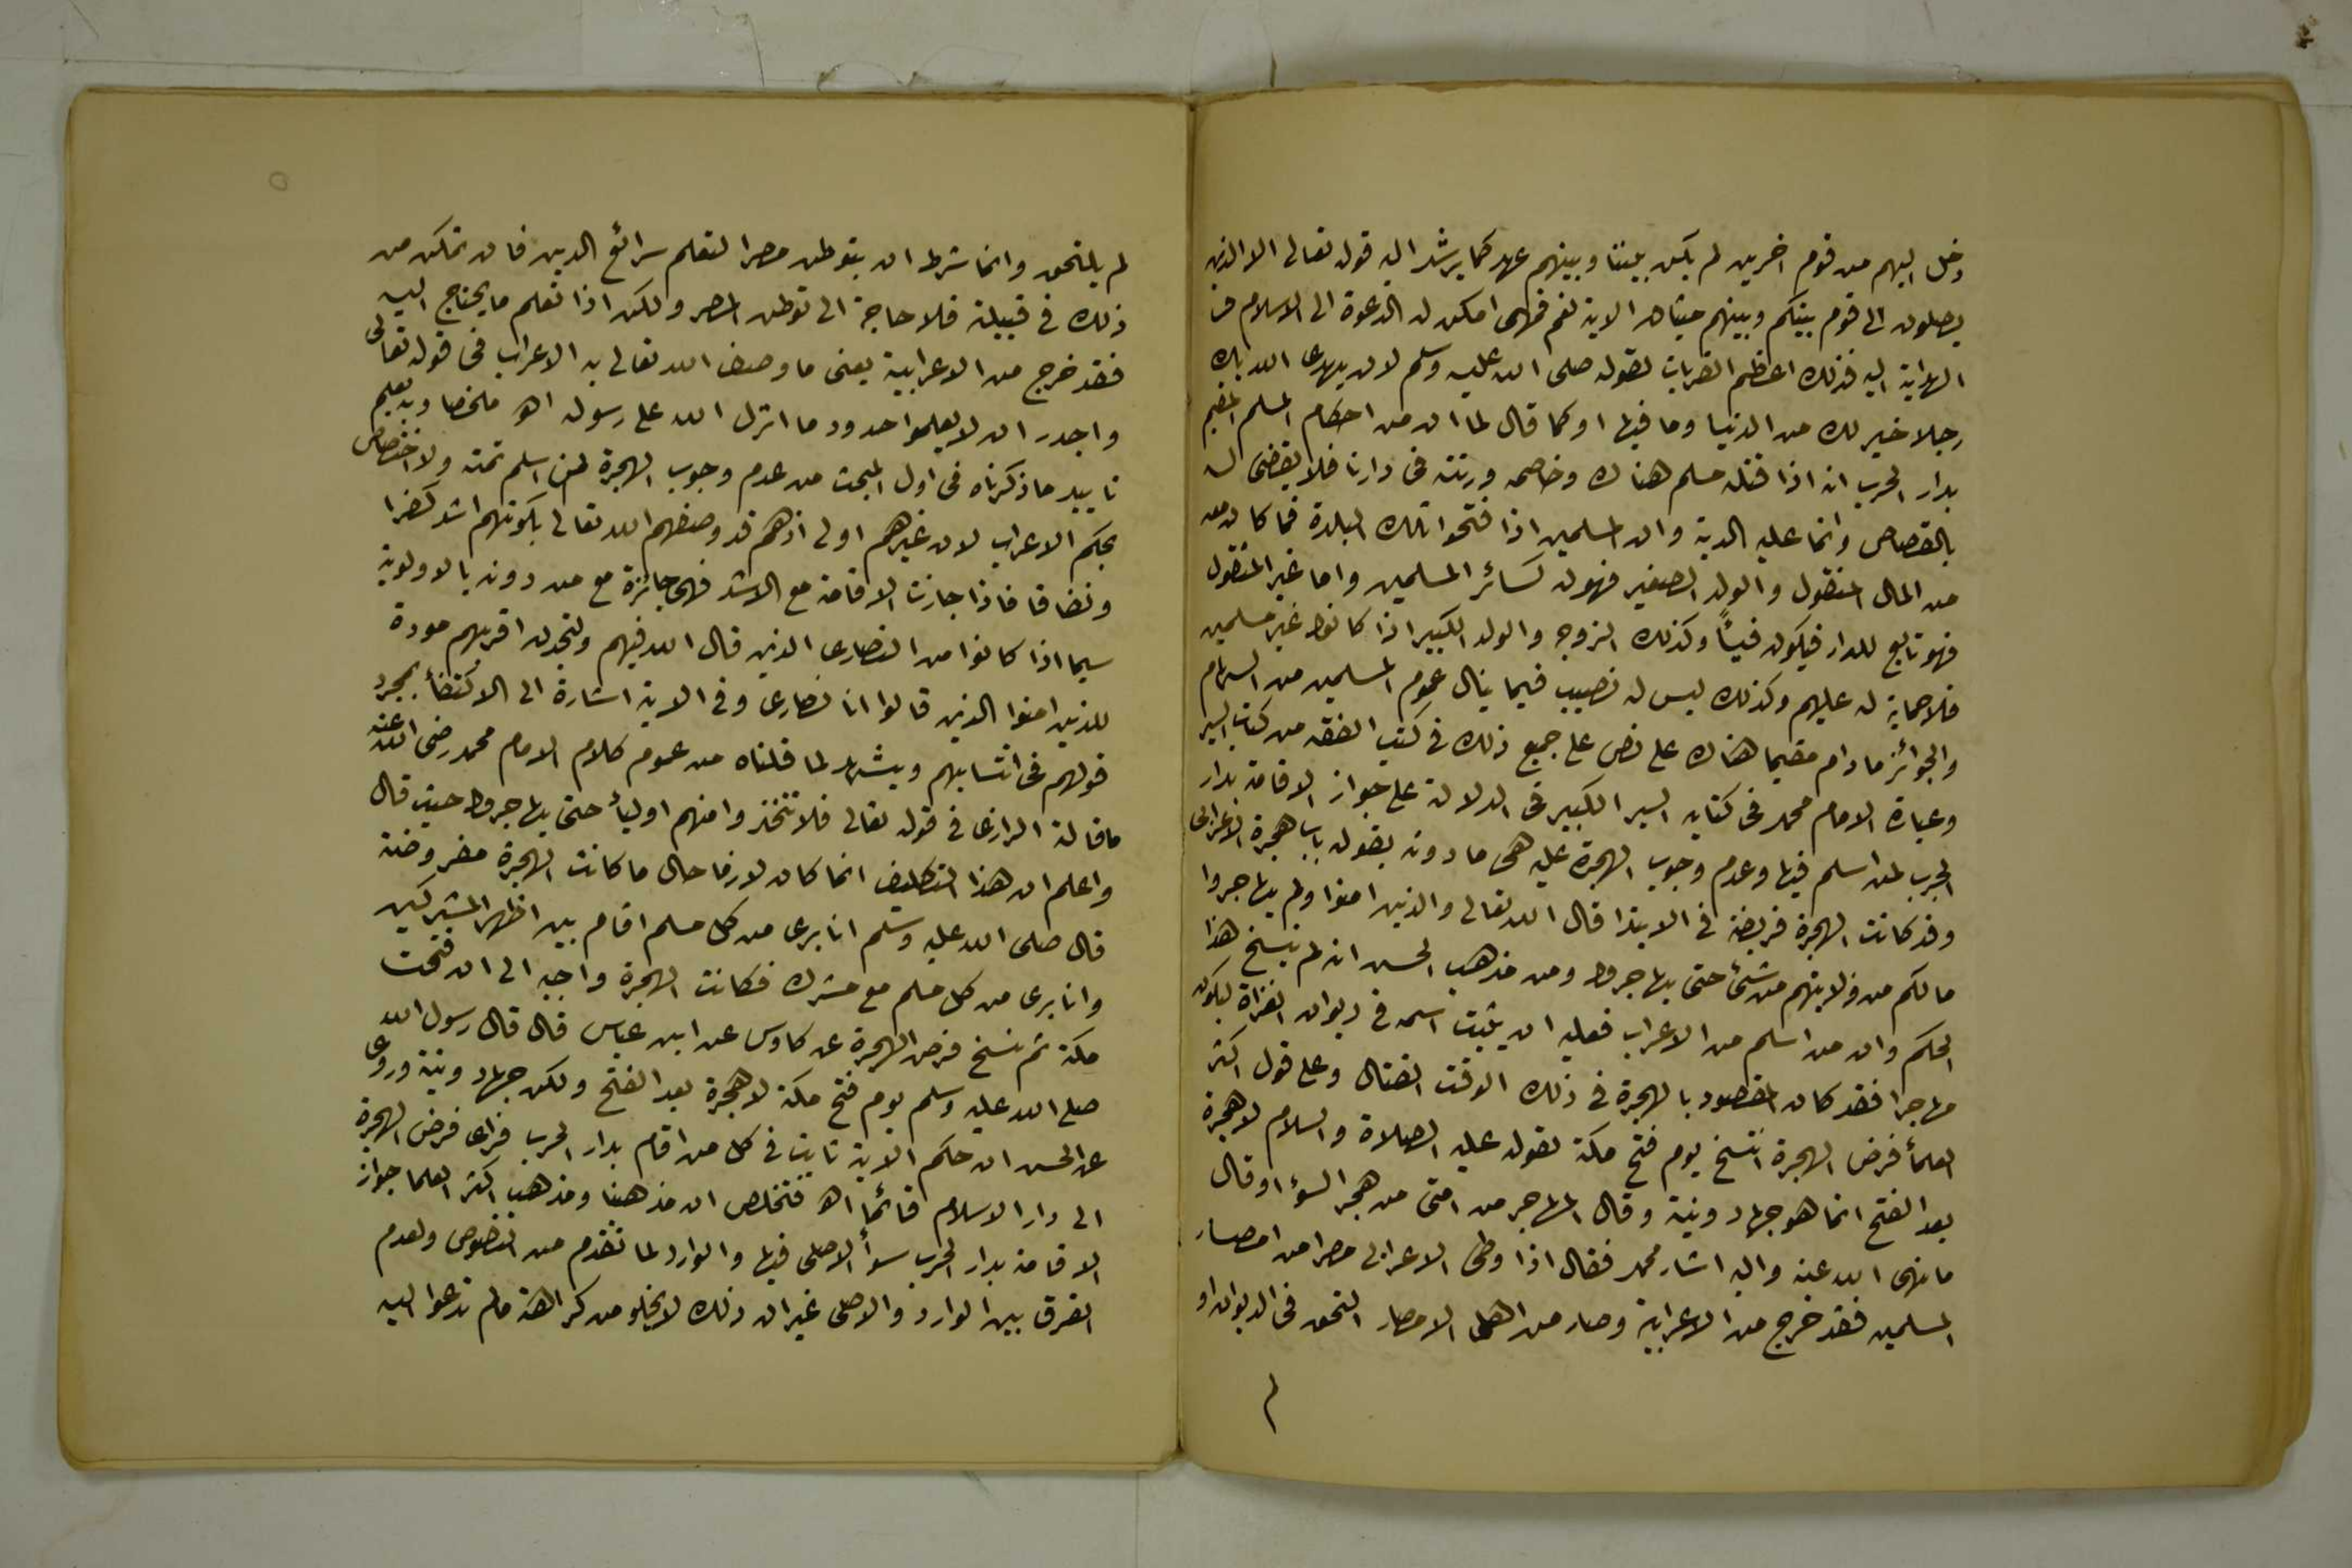 دخل اليهم من قوم اخرين لم يكن بيننا وبينهم عهد كما يرشد اليه قوله تعالى الا الذين
يصلون الى قوم بينكم وبينهم ميثاق الاية نعم فمتى امكن له الدعوة الى الاسلام
الهداية اليه فذلك اعظم القربات لقوله صلى الله عليه وسلم لان يهدى الله بك
رجلا خير لك من الدنيا وما فيها او كما قال لما ان من احكام المسلم المقيم
بدار الحرب انه اذا قتله مسلم هناك وخاصمه ورثته فى دارنا فلا يقضى له
بالقصاص وانما عليه الدية وان المسلمين اذا فتحوا تلك البلدة فما كان من
من المال المنقول والولد الصغير فهو له كسائر المسلمين واما غير المنقول
فهو تابع للدار فيكون فيئاً وكذلك الزوجه والولد الكبير اذا كانوا غير مسلمين
فلا حماية له عليهم وكذلك ليس له نصيب فيما ينال عموم المسلمين من السهام
والجوائز مادام مقيما هناك على نص على جميع ذلك فى كتب الفقه من كتاب السير
وعبارة الامام محمد فى كتابه السير الكبير فى الدلالة على جواز الاقامة بدار
الحرب لمن اسلم فيها وعدم وجوب الهجرة عليه هى ما دونه بقوله باب هجرة الاعرابى
وقد كانت الهجرة فريضة فى الابتدا قال الله تعالى والذين امنوا ولم يهاجروا
مالكم من ولايتهم من شئ حتى يهاجروا ومن مذهب الحسن انه لم ينسخ هذا
الحكم وان من اسلم من الاعراب فعليه ان يثبت اسمه فى ديوان الغزاة ليكون
مهاجرا فقد كان المقصود بالهجرة فى ذلك الوقت القتال وعلى قول اكثر
العلمأ فرض الهجرة انتسخ يوم فتح مكة لقوله عليه الصلاة والسلام لا هجرة
بعد الفتح انما هو جهاد ونية وقال المهاجر من امتى من هجر السؤ او قال
ما نهى الله عنه واليه اشار محمد فقال اذا وطى الاعرابى مصرا من امصار
المسلمين فقد خرج من الاعرابية وصار من اهل الامصار التحق فى الديوان او
لم
لم يلتحق وانما شرط ان يتوطن مصرا لتعلم شرائع الدين فان تمكن من
ذلك فى قبيلته فلا حاجة الى توطن المصر ولكن اذا تعلم ما يحتاج اليه
فقد خرج من الاعرابية يعنى ما وصف الله تعالى به الاعراب فى قوله تعالى
واجدر ان لا يعلموا حدود ما انزل الله على رسوله اهـ ملخصا وبه يعلم
تاييد ما ذكرناه فى اول المبحث من عدم وجوب الهجرة لمن اسلم ثمة ولا اختصاص
بحكم الاعراب لان غيرهم اولى اذ هم قد وصفهم الله تعالى بكونهم اشد كفرا
ونفاقا فاذا جازت الاقامة مع الاشد فهى جائزة مع من دونه بالاولوية
سيما اذا كانوا من النصارى الذين قال الله فيهم ولتجدن اقربهم مودة
للذين امنوا الذين قالوا انا نصارى وفى الاية اشارة الى الاكتفأ بمجرد
قولهم فى انتسابهم ويشهد لما قلناه من عموم كلام الامام محمد رضى الله عنه
ما قاله الرازى فى قوله تعالى فلا تتخذوا منهم اوليأ حتى يهاجروا حيث قال
واعلم ان هذا التكليف انما كان لازما حال ما كانت الهجرة مفروضة
قال صلى الله عليه وسلم انا برى من كل مسلم اقام بين اظهر المشركين
وانا برى من كل مسلم مع مشرك فكانت الهجرة واجبه الى ان فتحت
مكة ثم نسخ فرض الهجرة عن طاوس عن ابن عباس قال قال رسول الله
صلى الله عليه وسلم يوم فتح مكة لا هجرة بعد الفتح ولكن جهاد ونية وروى
عن الحسن ان حكم الاية ثابت فى كل من اقام بدار الحرب فراى فرض الهجرة
الى دار الاسلام قائماً اهـ فتخلص ان مذهبنا ومذهب اكثر العلما جواز
الاقامة بدار الحرب سوأ الاصلى فيها والوارد لما تقدم من النصوص ولعدم
الفرق بين الوارد والاصلى غير ان ذلك لا يخلو من كراهة مالم تدعوا اليه